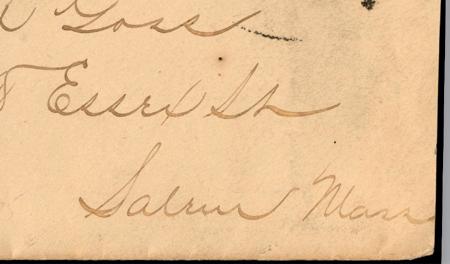 Goss
Essex St
Salem Mass